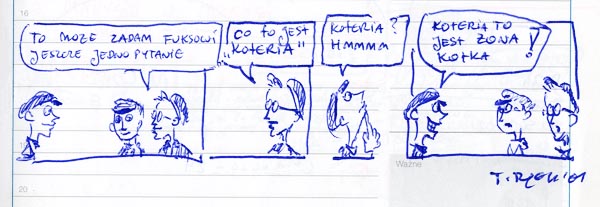 16
TO MOŻE ZADAM FUKSOWI
JESZCZE JEDNO PYTANIE
CO TO JEST
„KOTERIA"
KOTERIA?
HMMMM
KOTERIA TO
JEST ŻONA
KOTKA!
Ważne
20